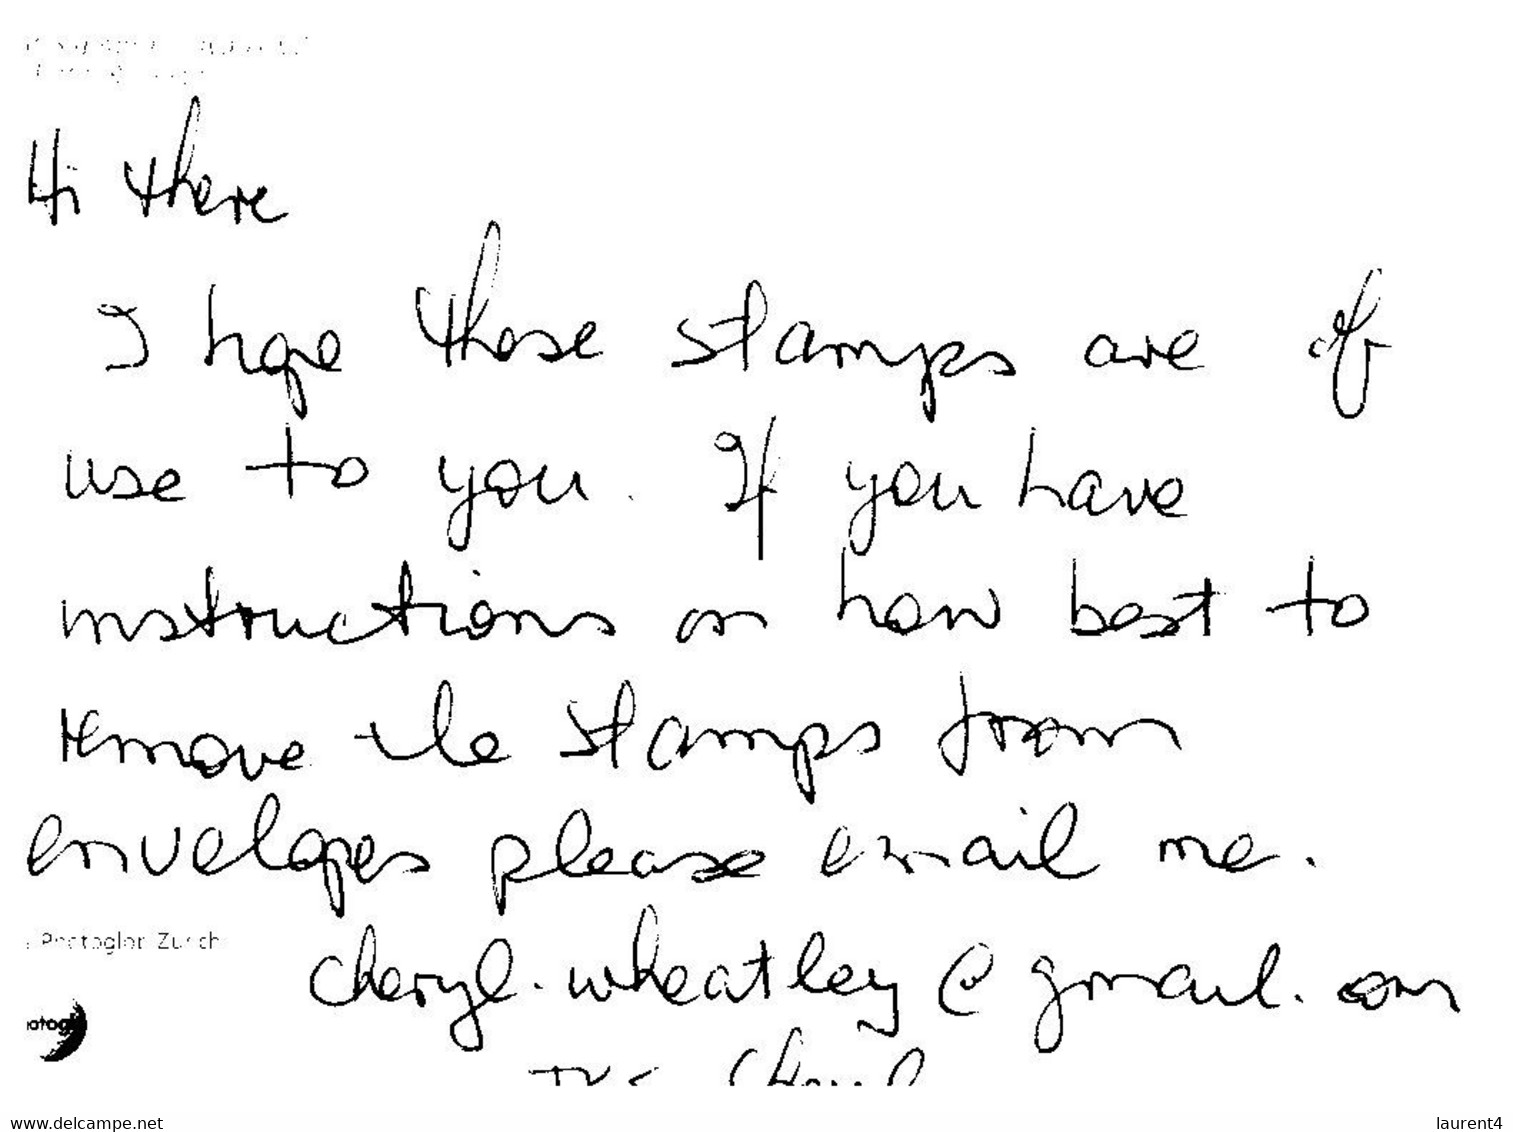 Hi there
I hope these stamps are of
use to you. If you have
instructions on how best to
remove the stamps from
envelopes please email me.
Photoglob Zurich
cheryl.wheatley@gmail.com
Cheryl
www.delcampe.net
laurent4